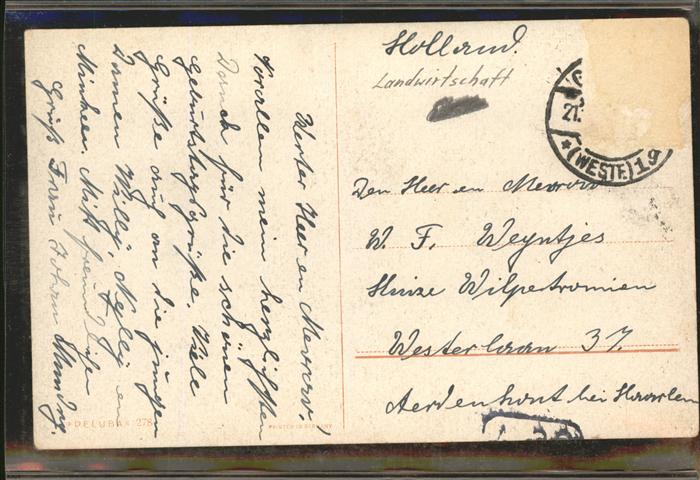 Werter Heer en Mevrouw!
Vorallen mein herzlichsten
Dank für die schönen
Geburtstagsgrüße. Viele
Grüße auch an die jungen
Damen Willy, Nelly en
Minheer. Mit freundlichen
Gruß Frau Johan
DELUBA 278
PRINTED IN GERMANY
Holland.
Landwirtschaft
21.
* (WESTF) 19
Den Heer en Mevrouw
W. F. Weyntjes
Huize Wilpertromien
Westerlaan 37.
Aerdenhout bei Haarlem